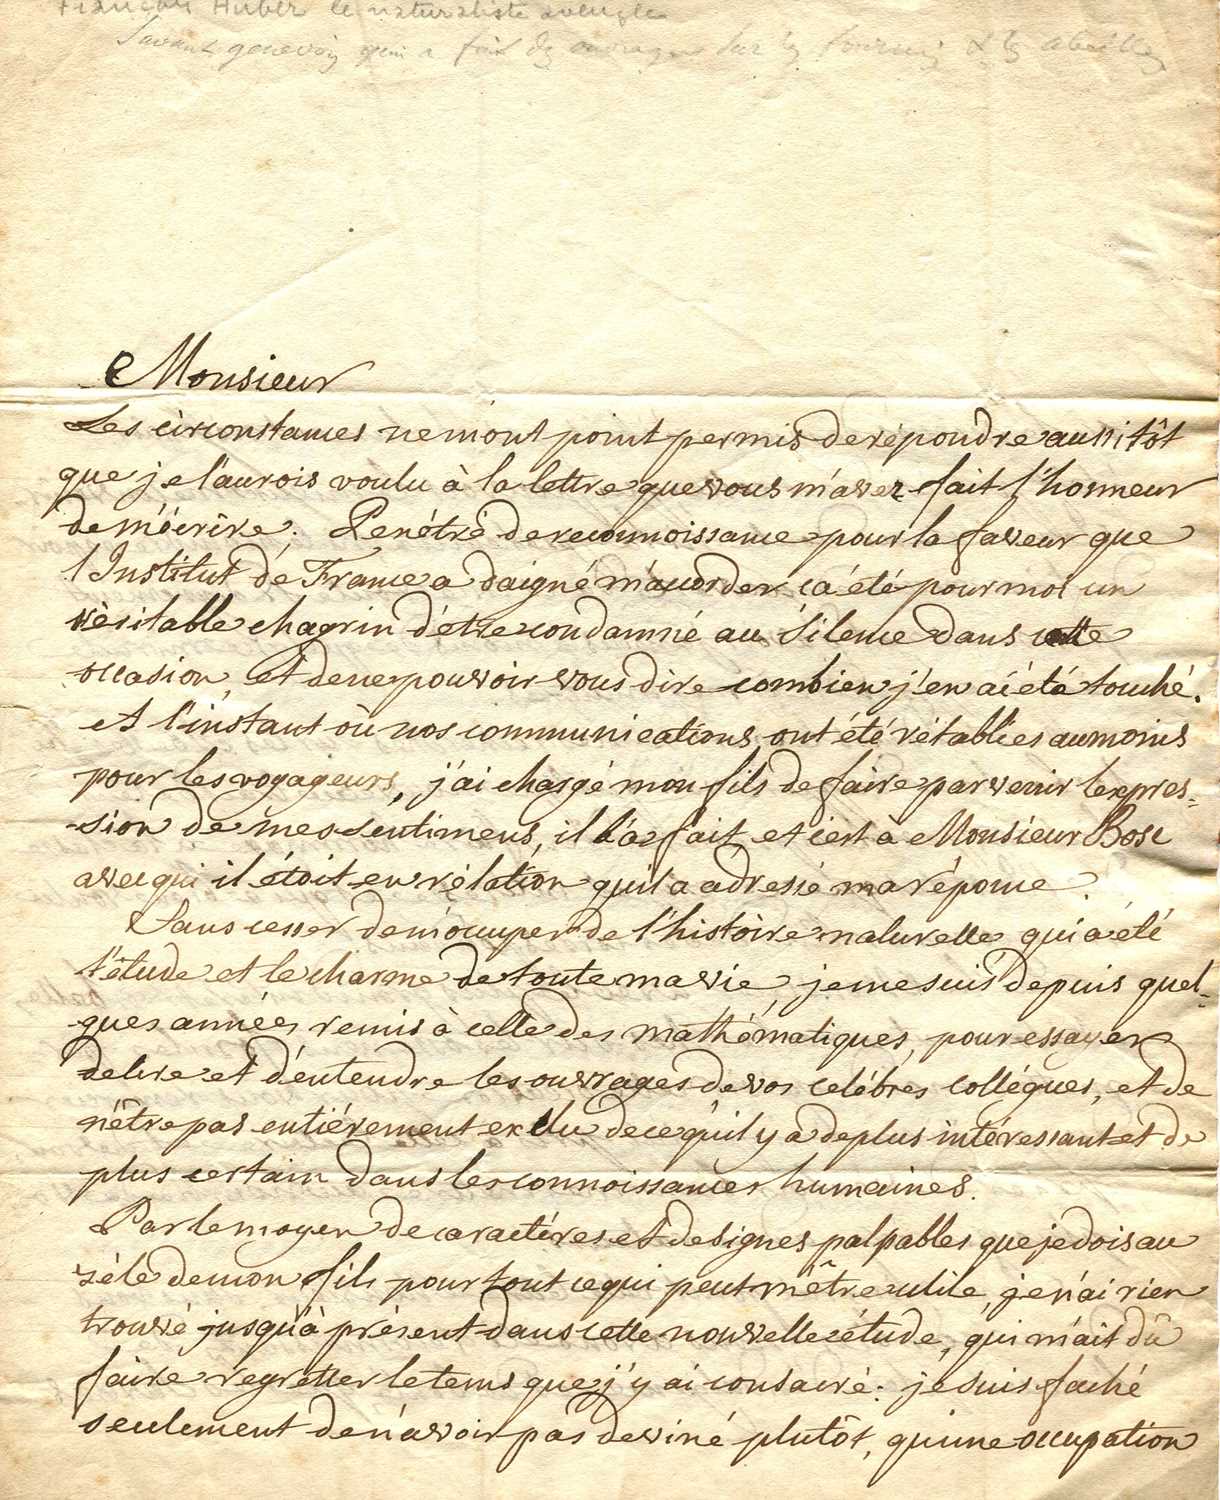 François Huber le naturaliste aveugle
Savant genevois qui a fait des ouvrages sur les fourmis & les abeilles
Monsieur
Les circonstances ne m'ont point permis de répondre aussitôt
que je l'aurois voulu à la lettre que vous m'avez fait l'honneur
de m'écrire. Penétré de reconnoissance pour la faveur que
l'Institut de France a daigné m'accorder ca été pour moi un
véritable chagrin d'être condamné au silence dans cette
occasion, et de ne pouvoir vous dire combien j'en ai été touché.
A l'instant où nos communications ont été rétablies au moins
pour les voyageurs, j'ai chargé mon fils de faire parvenir l'expres-
-sion de mes sentimens, il l'a fait, et c'est à Monsieur Bosc
avec qui il étoit en rélation qu'il a adressé ma réponse.
Sans cesser de m'occuper de l'histoire naturelle qui a été
l'étude et le charme de toute ma vie, je me suis depuis quel-
ques années remis à celle des mathématiques, pour essayer
de lire et d'entendre les ouvrages de vos celébres collégues, et de
n'être pas entiérement exclu de ce qu'il y a de plus intéressant et de
plus certain dans les connoissances humaines.
Par le moyen de caractéres et de signes palpables que je dois au
zéle de mon fils pour tout ce qui peut m'être utile, je n'ai rien
trouvé jusqu'à présent dans cette nouvelle étude, qui m'ait dû
faire regretter le tems que j'y ai consacré: je suis faché
seulement de n'avoir pas deviné plutôt, qu'une occupation